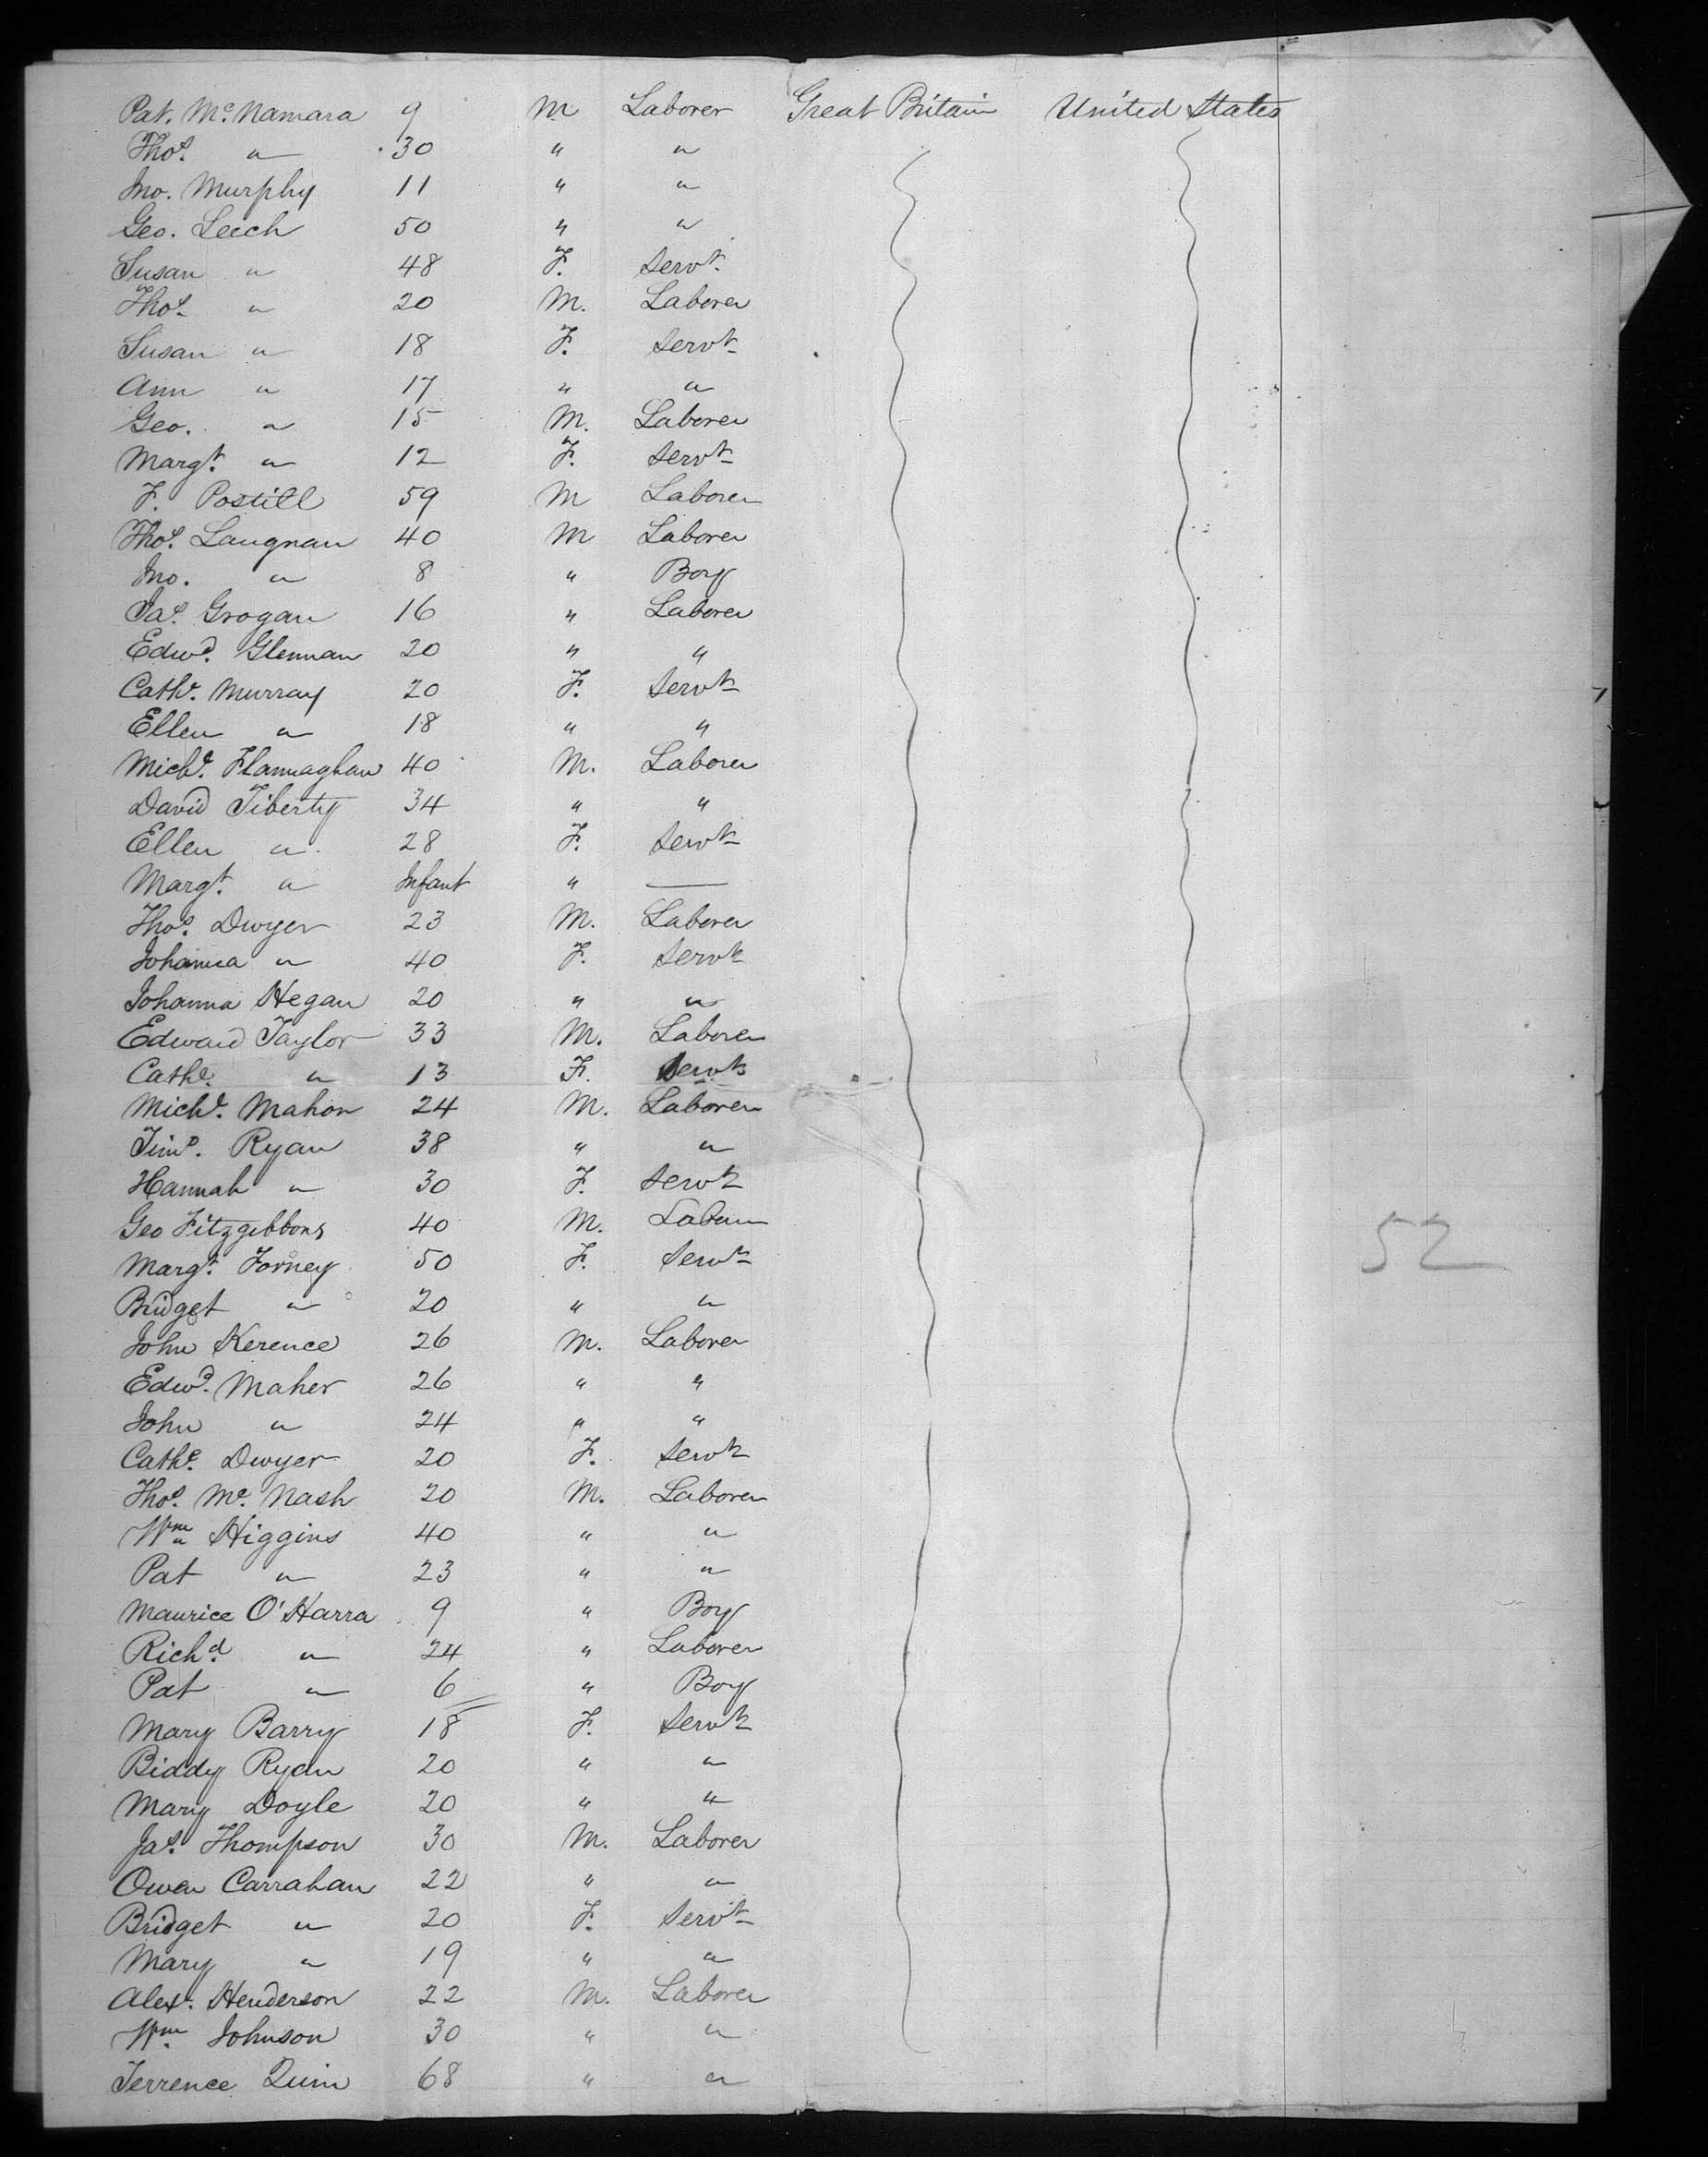 Pat. McNamara 9 M Laborer Great Britain United States
Thos. " 30 " "
Jno. Murphy 11 " "
Geo. Leech 50 " "
Susan " 48 F. Servt.
Thos. " 20 M. Laborer
Susan " 18 F. Servt
Ann " 17 " "
Geo. " 15 M. Laborer
Margt. " 12 F. Servt
F. Postill 59 M Laborer
Thos. Laugnan 40 M Laborer
Jno. " 8 " Boy
Jas. Grogan 16 " Laborer
Edwd. Glennan 20 " "
Cathe. Murray 20 F. Servt
Ellen " 18 " "
Michl. Flannaghan 40 M. Laborer
David Tiberty 34 " "
Ellen " 28 F. Servt
Margt. " Infant " —
Thos. Dwyer 23 M. Laborer
Johanna " 40 F. Servt
Johanna Hegan 20 " "
Edward Taylor 33 M. Laborer
Cathe. " 13 F. Servt
Michl. Mahon 24 M. Laborer
Timo. Ryan 38 " "
Hannah " 30 F. Servt
Geo Fitzgibbons 40 M. Laborer
Margt. Forney 50 F. Servt
Bridget " 20 " "
John Kerence 26 M. Laborer
Edwd. Maher 26 " "
John " 24 " "
Cathe. Dwyer 20 F. Servt
Thos. Mc. Nash 20 M. Laborer
Wm Higgins 40 " "
Pat " 23 " "
Maurice O'Harra 9 " Boy
Richd. " 24 " Laborer
Pat " 6 " Boy
Mary Barry 18 F. Servt
Biddy Ryan 20 " "
Mary Doyle 20 " "
Jas. Thompson 30 M. Laborer
Owen Carrahan 22 " "
Bridget " 20 F. Servt
Mary " 19 " "
Alexr. Henderson 22 M. Laborer
Wm. Johnson 30 " "
Terrence Quin 68 " "
52